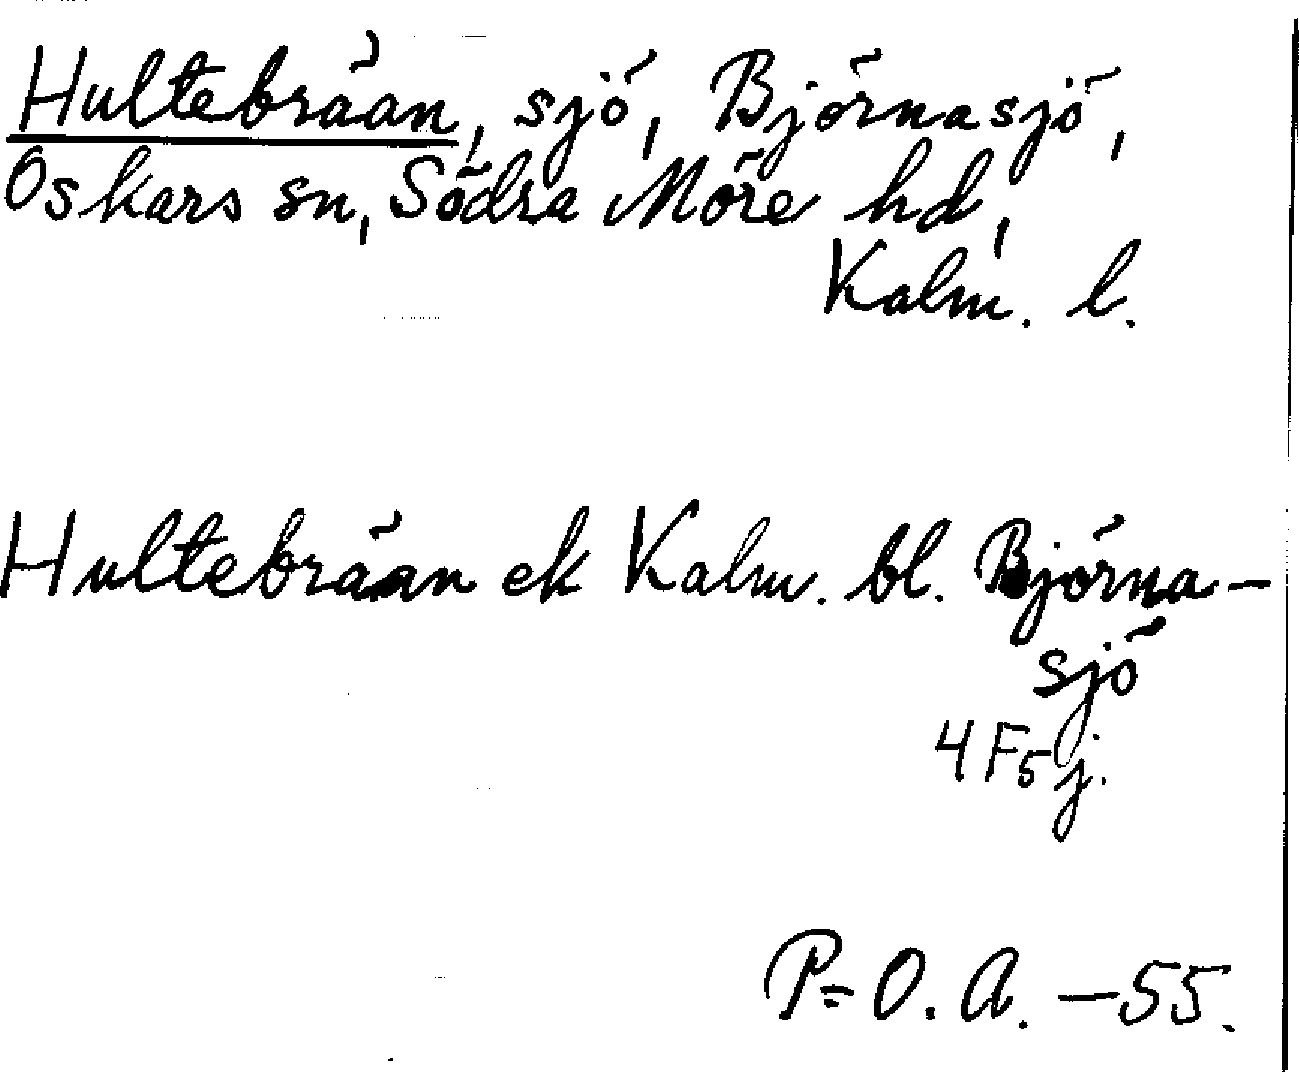 Hultebråan, sjö, Björnasjö,
Oskars sn, Södra Möre hd,
Kalm. l.
Hultebråan ek Kalm. bl. Björna-
sjö
4F5j.
P=O. A. -55.